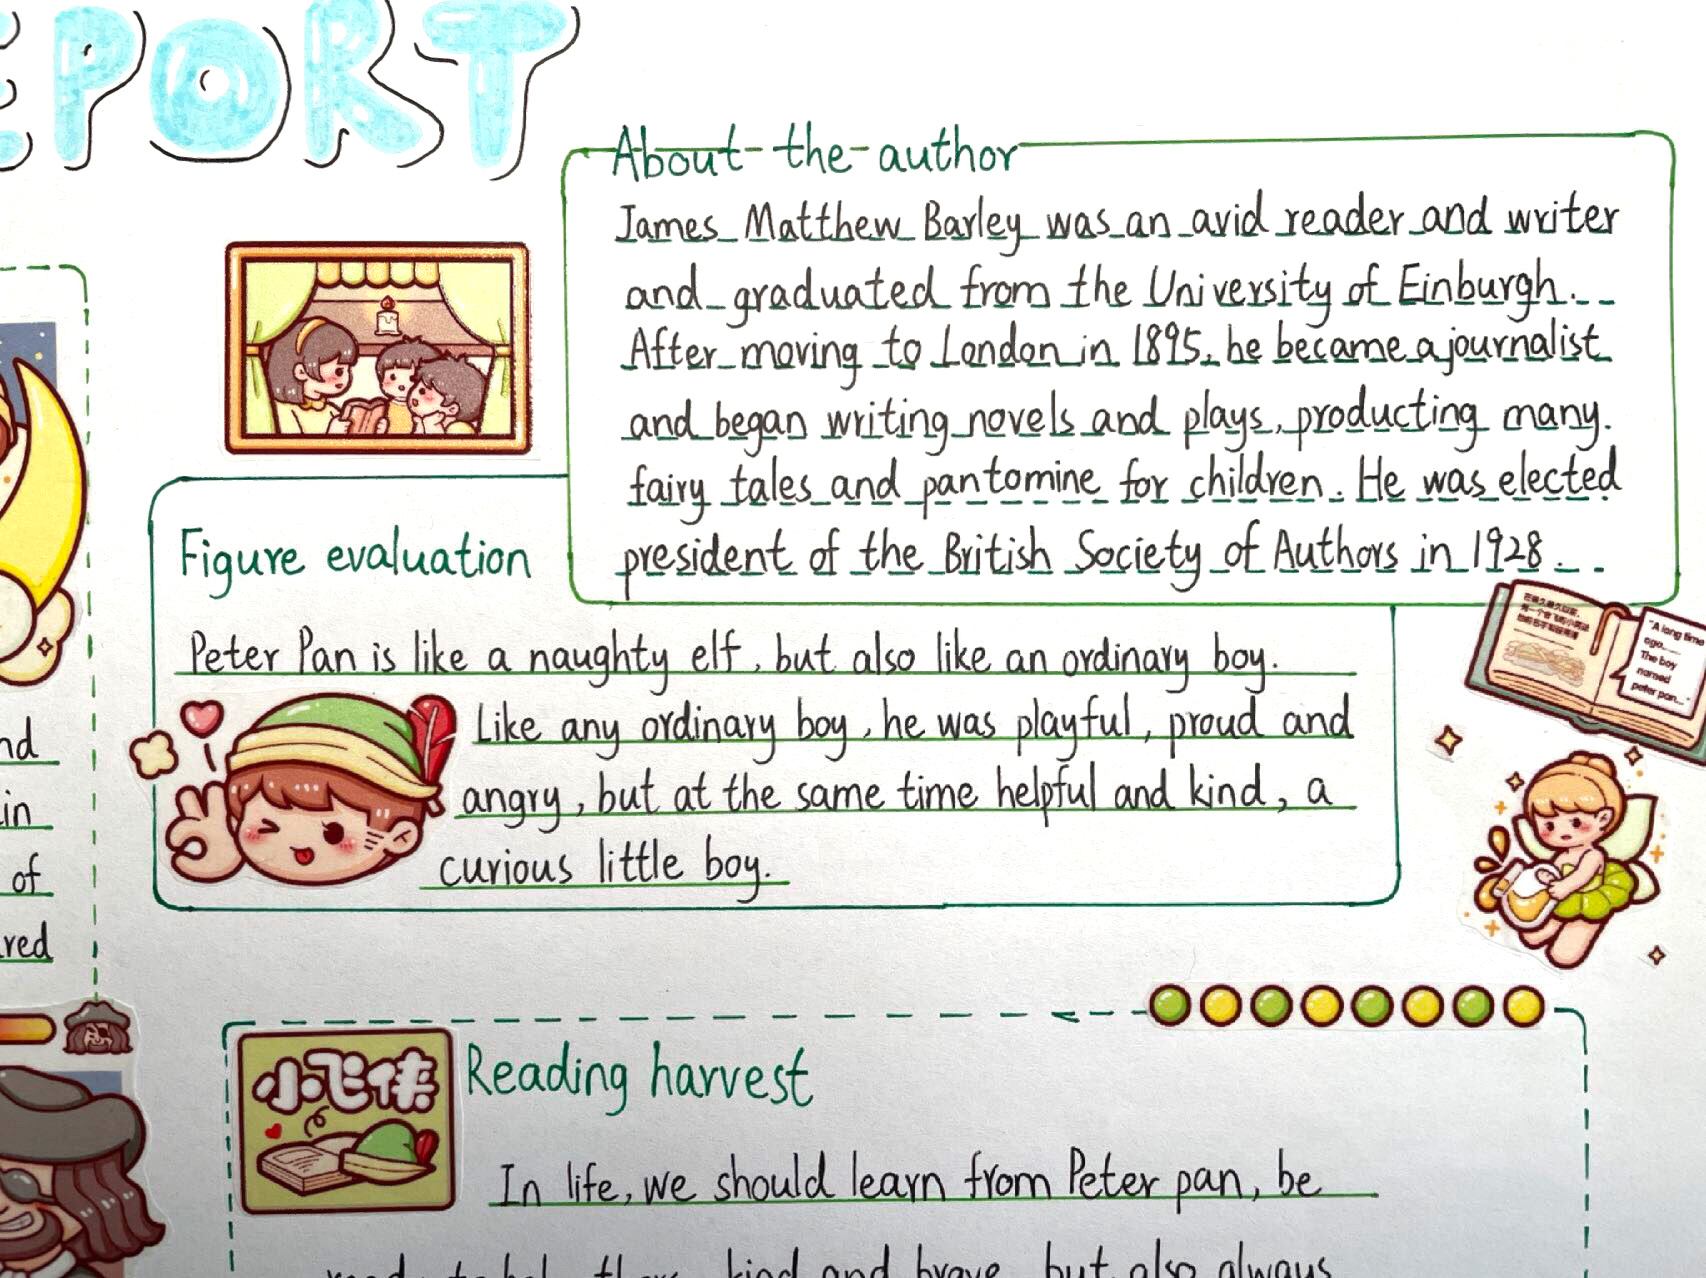 EPORT
About the author
James Matthew Barley was an avid reader and writer
and graduated from the University of Einburgh.
After moving to London in 1895, he became a journalist
and began writing novels and plays, producting many.
fairy tales and pantomine for children. He was elected
president of the British Society of Authors in 1928
Figure evaluation
Peter Pan is like a naughty elf, but also like an ordinary boy.
Like any ordinary boy, he was playful, proud and
angry, but at the same time helpful and kind, a
curious little boy.
"A long time
ago......
The boy
named
peter pan..."
nd
in
of
red
小飞侠
Reading harvest
In life, we should learn from Peter pan, be
kind and brave, but also always